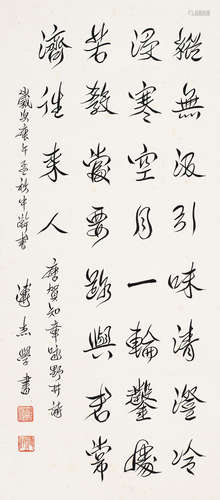 縱無汲引味清澄冷
浸寒空月一輪鑿處
若教當要路與君常
濟往來人
唐賀知章詠野井詩
歲次庚午孟秋中澣書
溥杰學書